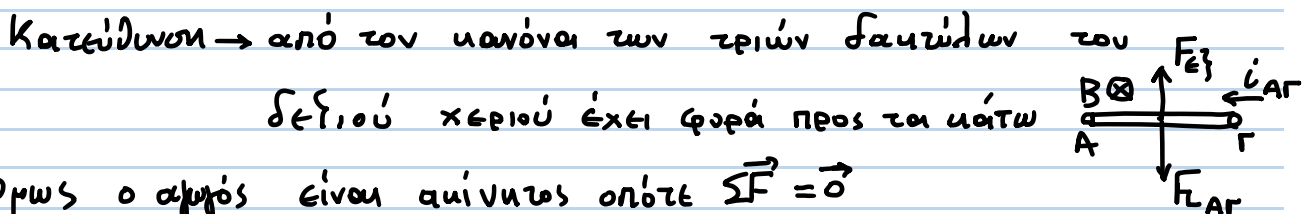 Κατεύθυνση → από τον κανόνα των τριών δακτύλων του
δεξιού χεριού έχει φορά προς τα κάτω
Όμως ο αγωγός είναι ακίνητος οπότε ΣF⃗ = 0⃗
Fεξ
B ⊗
iΑΓ
Α
Γ
FL ΑΓ